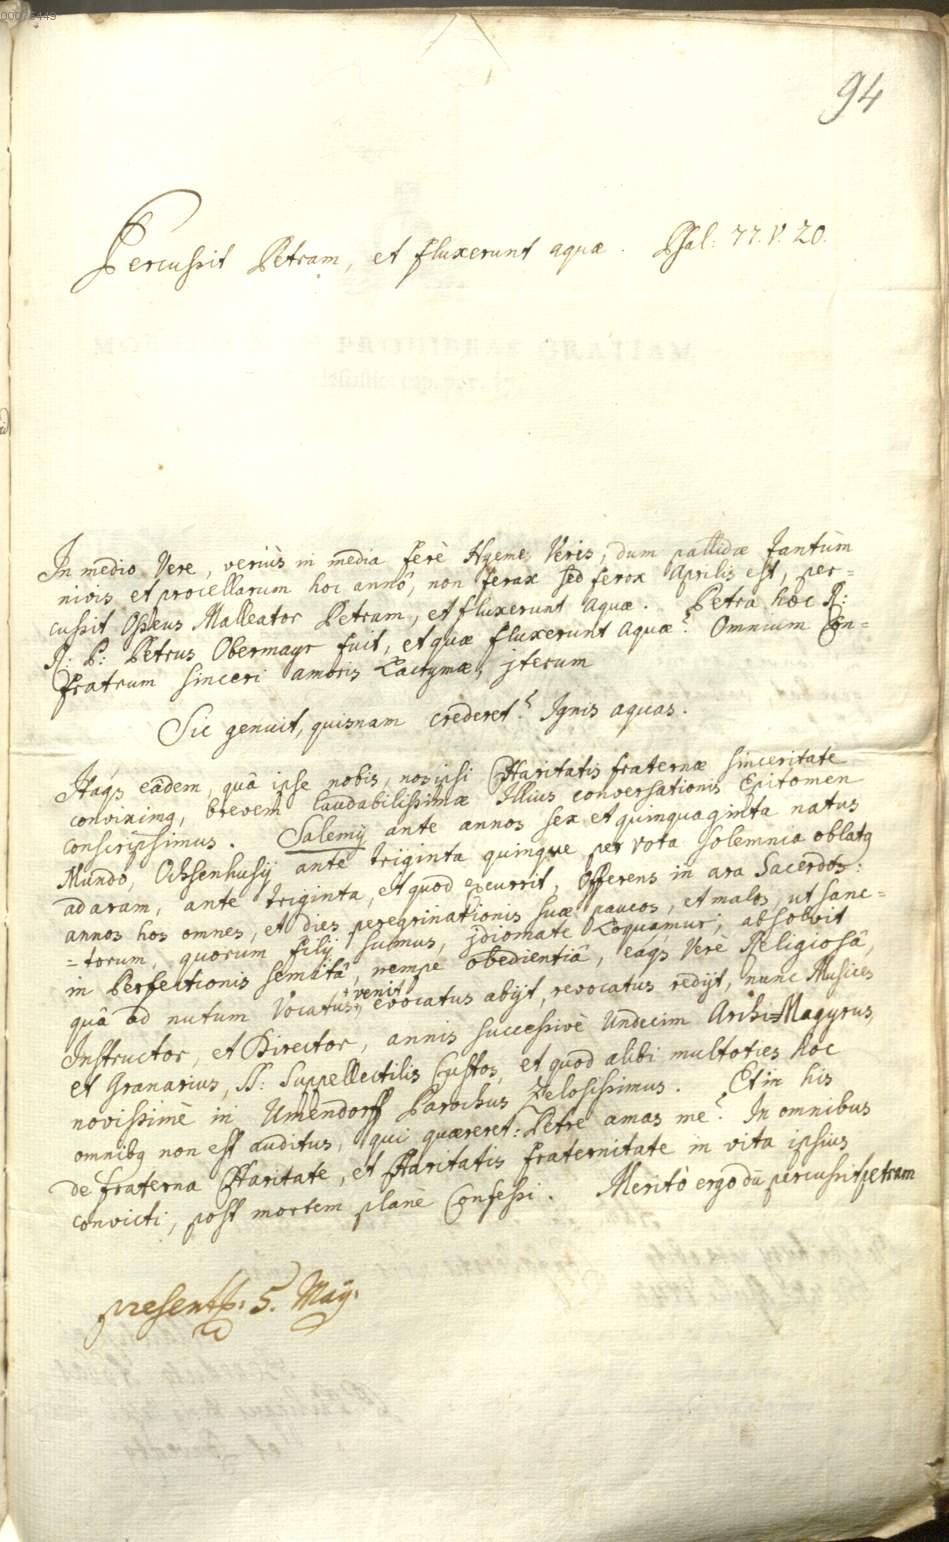 00005449
94
Percussit Petram, et fluxerunt aquæ. Psal: 77. V. 20.
In medio Vere, veriùs in media ferè Hyeme Veris, dum pallidæ tantùm
nivis et procellarum hoc annô, non ferax sed ferox Aprilis est, per=
cussit Osseus Malleator Petram, et fluxerunt aquæ. Petra hæc R:
R: P: Petrus Obermayr fuit, et quæ fluxerunt aquæ? Omnium Con=
fratrum sinceri amoris Lacrymæ, jterum
Sic genuit, quisnam crederet? Ignis aquas.
Itaqs eâdem, quâ ipse nobis, nos ipsi Charitatis fraternæ sinceritate
conviximg, brevem laudabilissimæ Illius conversationis Epitomen
conscripsimus. Salemij ante annos sex et quinquaginta natus
Mundo, Ochsenhusij ante triginta quinque per vota solemnia oblatg
ad aram, ante triginta, et quod excurrit, Offerens in ara Sacerdos:
annos hos omnes, et dies peregrinationis suæ paucos, et malos, ut sanc=
=torum, quorum filij sumus, jdiomate Loquamur, absolvit
in Perfectionis semitâ, nempe obedientiâ, eaqs Verè Religiosâ,
quâ ad nutum Vocatus venit, evocatus abijt, revocatus redijt, nunc Musices
Instructor, et Director, annis successivè Undecim Archi=Magyrus,
et Granarius, SS: Suppellectilis Custos, et quod alibi multoties hoc
novissimè in Umendorff Parochus Zelosissimus. Et in his
omnibg non est auditus, qui quæreret: Petre amas me? In omnibus
de fraterna Charitate, et Charitatis fraternitate in vita ipsius
convicti, post mortem planè Confessi. Meritò ergo dū percussit petram
5. Maij.